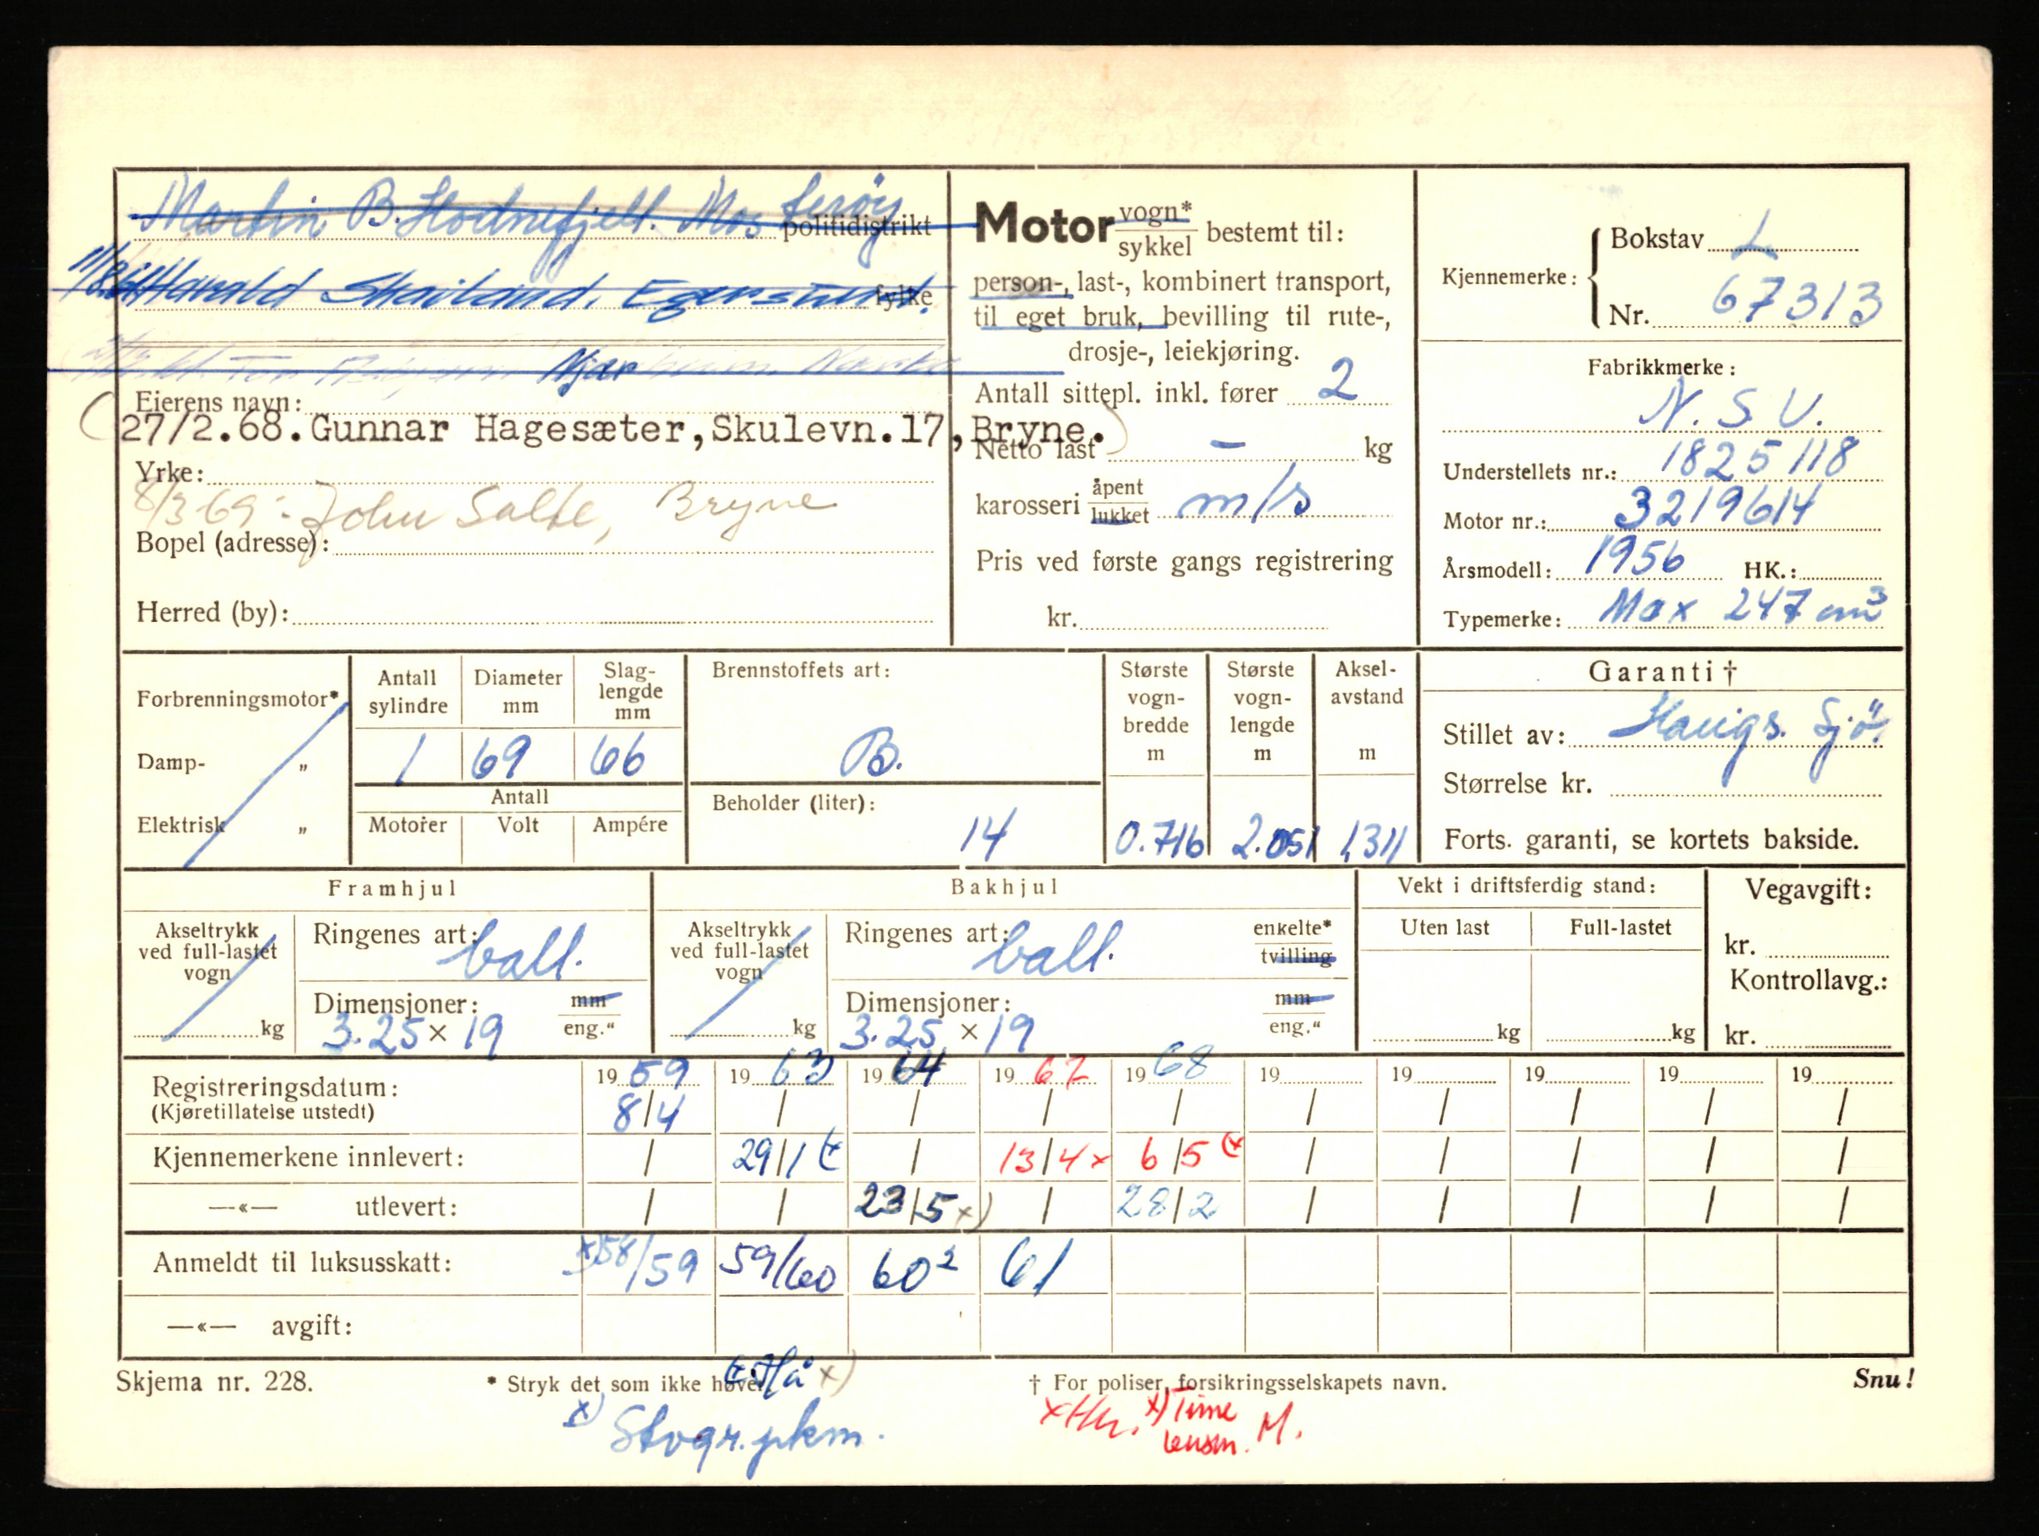 Martin B. Hodnefjell. Mosterøy
politidistrikt
11/8.61 Harald Skailand. Egersund.
fylke
Eierens navn:
27/2.68. Gunnar Hagesæter, Skulevn. 17, Bryne.
Yrke:
8/3 69: John Salte, Bryne
Bopel (adresse):
Herred (by):
Motor vogn* sykkel bestemt til:
person-, last-, kombinert transport,
til eget bruk, bevilling til rute-,
drosje-, leiekjøring.
Antall sittepl. inkl. fører 2
Netto last – kg
karosseri åpent lukket m/s
Pris ved første gangs registrering
kr.
Kjennemerke: Bokstav L
Nr. 67313
Fabrikkmerke:
N.S.U.
Understellets nr.: 1825118
Motor nr.: 3219614
Årsmodell: 1956 HK.:
Typemerke: Max 247 cm³
Forbrenningsmotor*
Damp- „
Elektrisk „
Antall sylindre Diameter mm Slag-lengde mm
1 69 66
Antall
Motorer Volt Ampére
Brennstoffets art:
B.
Beholder (liter):
14
Største vogn-bredde m Største vogn-lengde m Aksel-avstand m
0.716 2.051 1,311
Garanti †
Stillet av: Haugs. Sjø.
Størrelse kr.
Forts. garanti, se kortets bakside.
Framhjul
Akseltrykk ved full-lastet vogn
kg
Ringenes art: ball.
Dimensjoner: mm eng."
3.25 × 19
Bakhjul
Akseltrykk ved full-lastet vogn
kg
Ringenes art: ball. enkelte* tvilling
Dimensjoner: mm eng."
3.25 × 19
Vekt i driftsferdig stand:
Uten last Full-lastet
kg kg
Vegavgift:
kr.
Kontrollavg.:
kr.
Registreringsdatum: 19 59 19 63 19 64 19 67 19 68 19 19 19 19 19
(Kjøretillatelse utstedt) 8/4 / / / / / / / / /
Kjennemerkene innlevert: / 29/1 / 13/4 x 6/5 / / / / /
—«— utlevert: / / 23/5 x) / 28/2 / / / / /
Anmeldt til luksusskatt: x) 58/59 59/60 60² 61
—«— avgift:
Skjema nr. 228.
* Stryk det som ikke høver.
Hå x)
† For poliser, forsikringsselskapets navn.
Snu!
x) Stvgr. pkm.
x) Time
lensm. M.